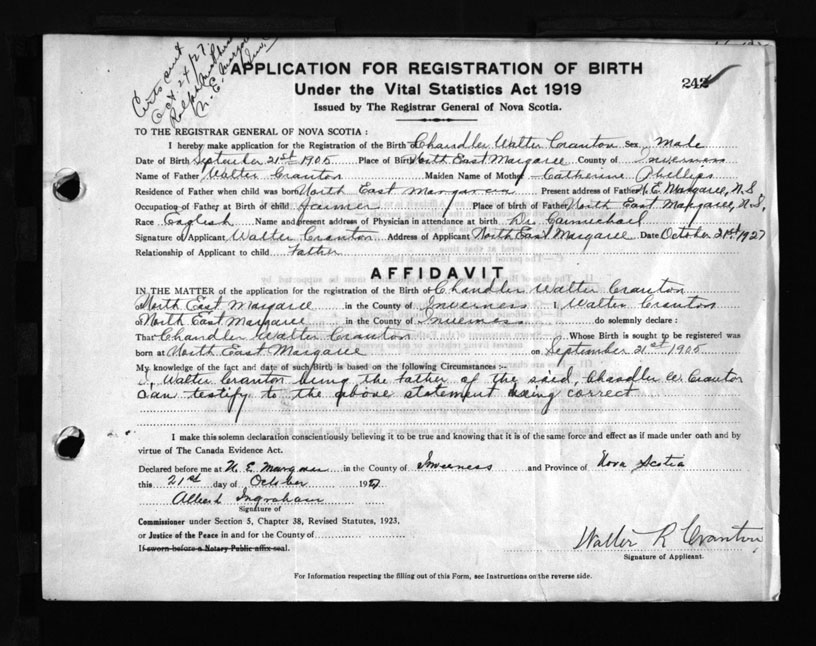 Certs sent
Oct 24/27
Ralph
N. E. Margaree
APPLICATION FOR REGISTRATION OF BIRTH
Under the Vital Statistics Act 1919
242
Issued by The Registrar General of Nova Scotia.
TO THE REGISTRAR GENERAL OF NOVA SCOTIA :
I hereby make application for the Registration of the Birth of Chandler Walter Cranton Sex Male
Date of Birth September 21st 1905 Place of Birth North East Margaree County of Inverness
Name of Father Walter Cranton Maiden Name of Mother Catherine Phillips
Residence of Father when child was born North East Margaree Present address of Father N. E. Margaree, N.S.
Occupation of Father at Birth of child farmer Place of birth of Father North East Margaree, N.S.
Race English Name and present address of Physician in attendance at birth Dr. Carmichael
Signature of Applicant Walter Cranton Address of Applicant North East Margaree Date October 21st, 1927
Relationship of Applicant to child Father
AFFIDAVIT
IN THE MATTER of the application for the registration of the Birth of Chandler Walter Cranton
of North East Margaree in the County of Inverness I, Walter Cranton
of North East Margaree in the County of Inverness do solemnly declare :
That Chandler Walter Cranton Whose Birth is sought to be registered was
born at North East Margaree on September 21st 1905
My knowledge of the fact and date of such Birth is based on the following Circumstances :-
I, Walter Cranton being the Father of the said, Chandler W. Cranton
can testify to the above statement being correct
I make this solemn declaration conscientiously believing it to be true and knowing that it is of the same force and effect as if made under oath and by
virtue of The Canada Evidence Act.
Declared before me at N. E. Margaree in the County of Inverness and Province of Nova Scotia
this 21st day of October 1927
Albert Ingraham
Signature of
Commissioner under Section 5, Chapter 38, Revised Statutes, 1923,
or Justice of the Peace in and for the County of
If sworn before a Notary Public affix seal.
Walter R Cranton
Signature of Applicant.
For Information respecting the filling out of this Form, see Instructions on the reverse side.